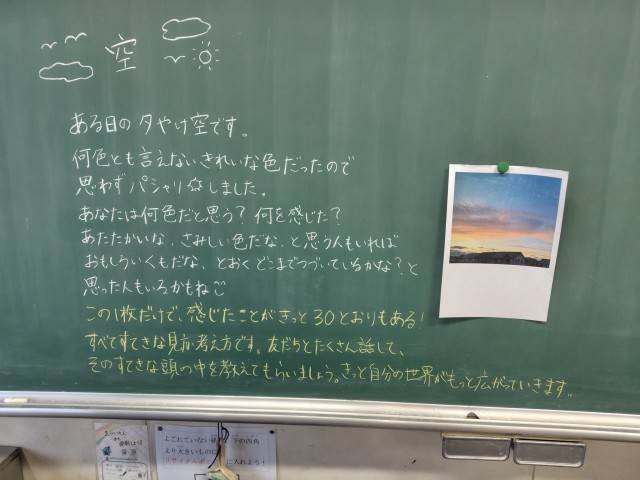 空
ある日の夕やけ空です。
何色とも言えないきれいな色だったので
思わずパシャリしました。
あなたは何色だと思う？何を感じた？
あたたかいな、さみしい色だな、と思う人もいれば
おもしろいくもだな、とおくどこまでつづいているかな？と
思った人もいるかもね
この1枚だけで、感じたことがきっと30とおりもある！
すべてすてきな見方・考え方です。友だちとたくさん話して、
そのすてきな頭の中を教えてもらいましょう。きっと自分の世界がもっと広がっていきます。
よごれていない 下の四角
より大きいもの
リサイクル に入れよう！